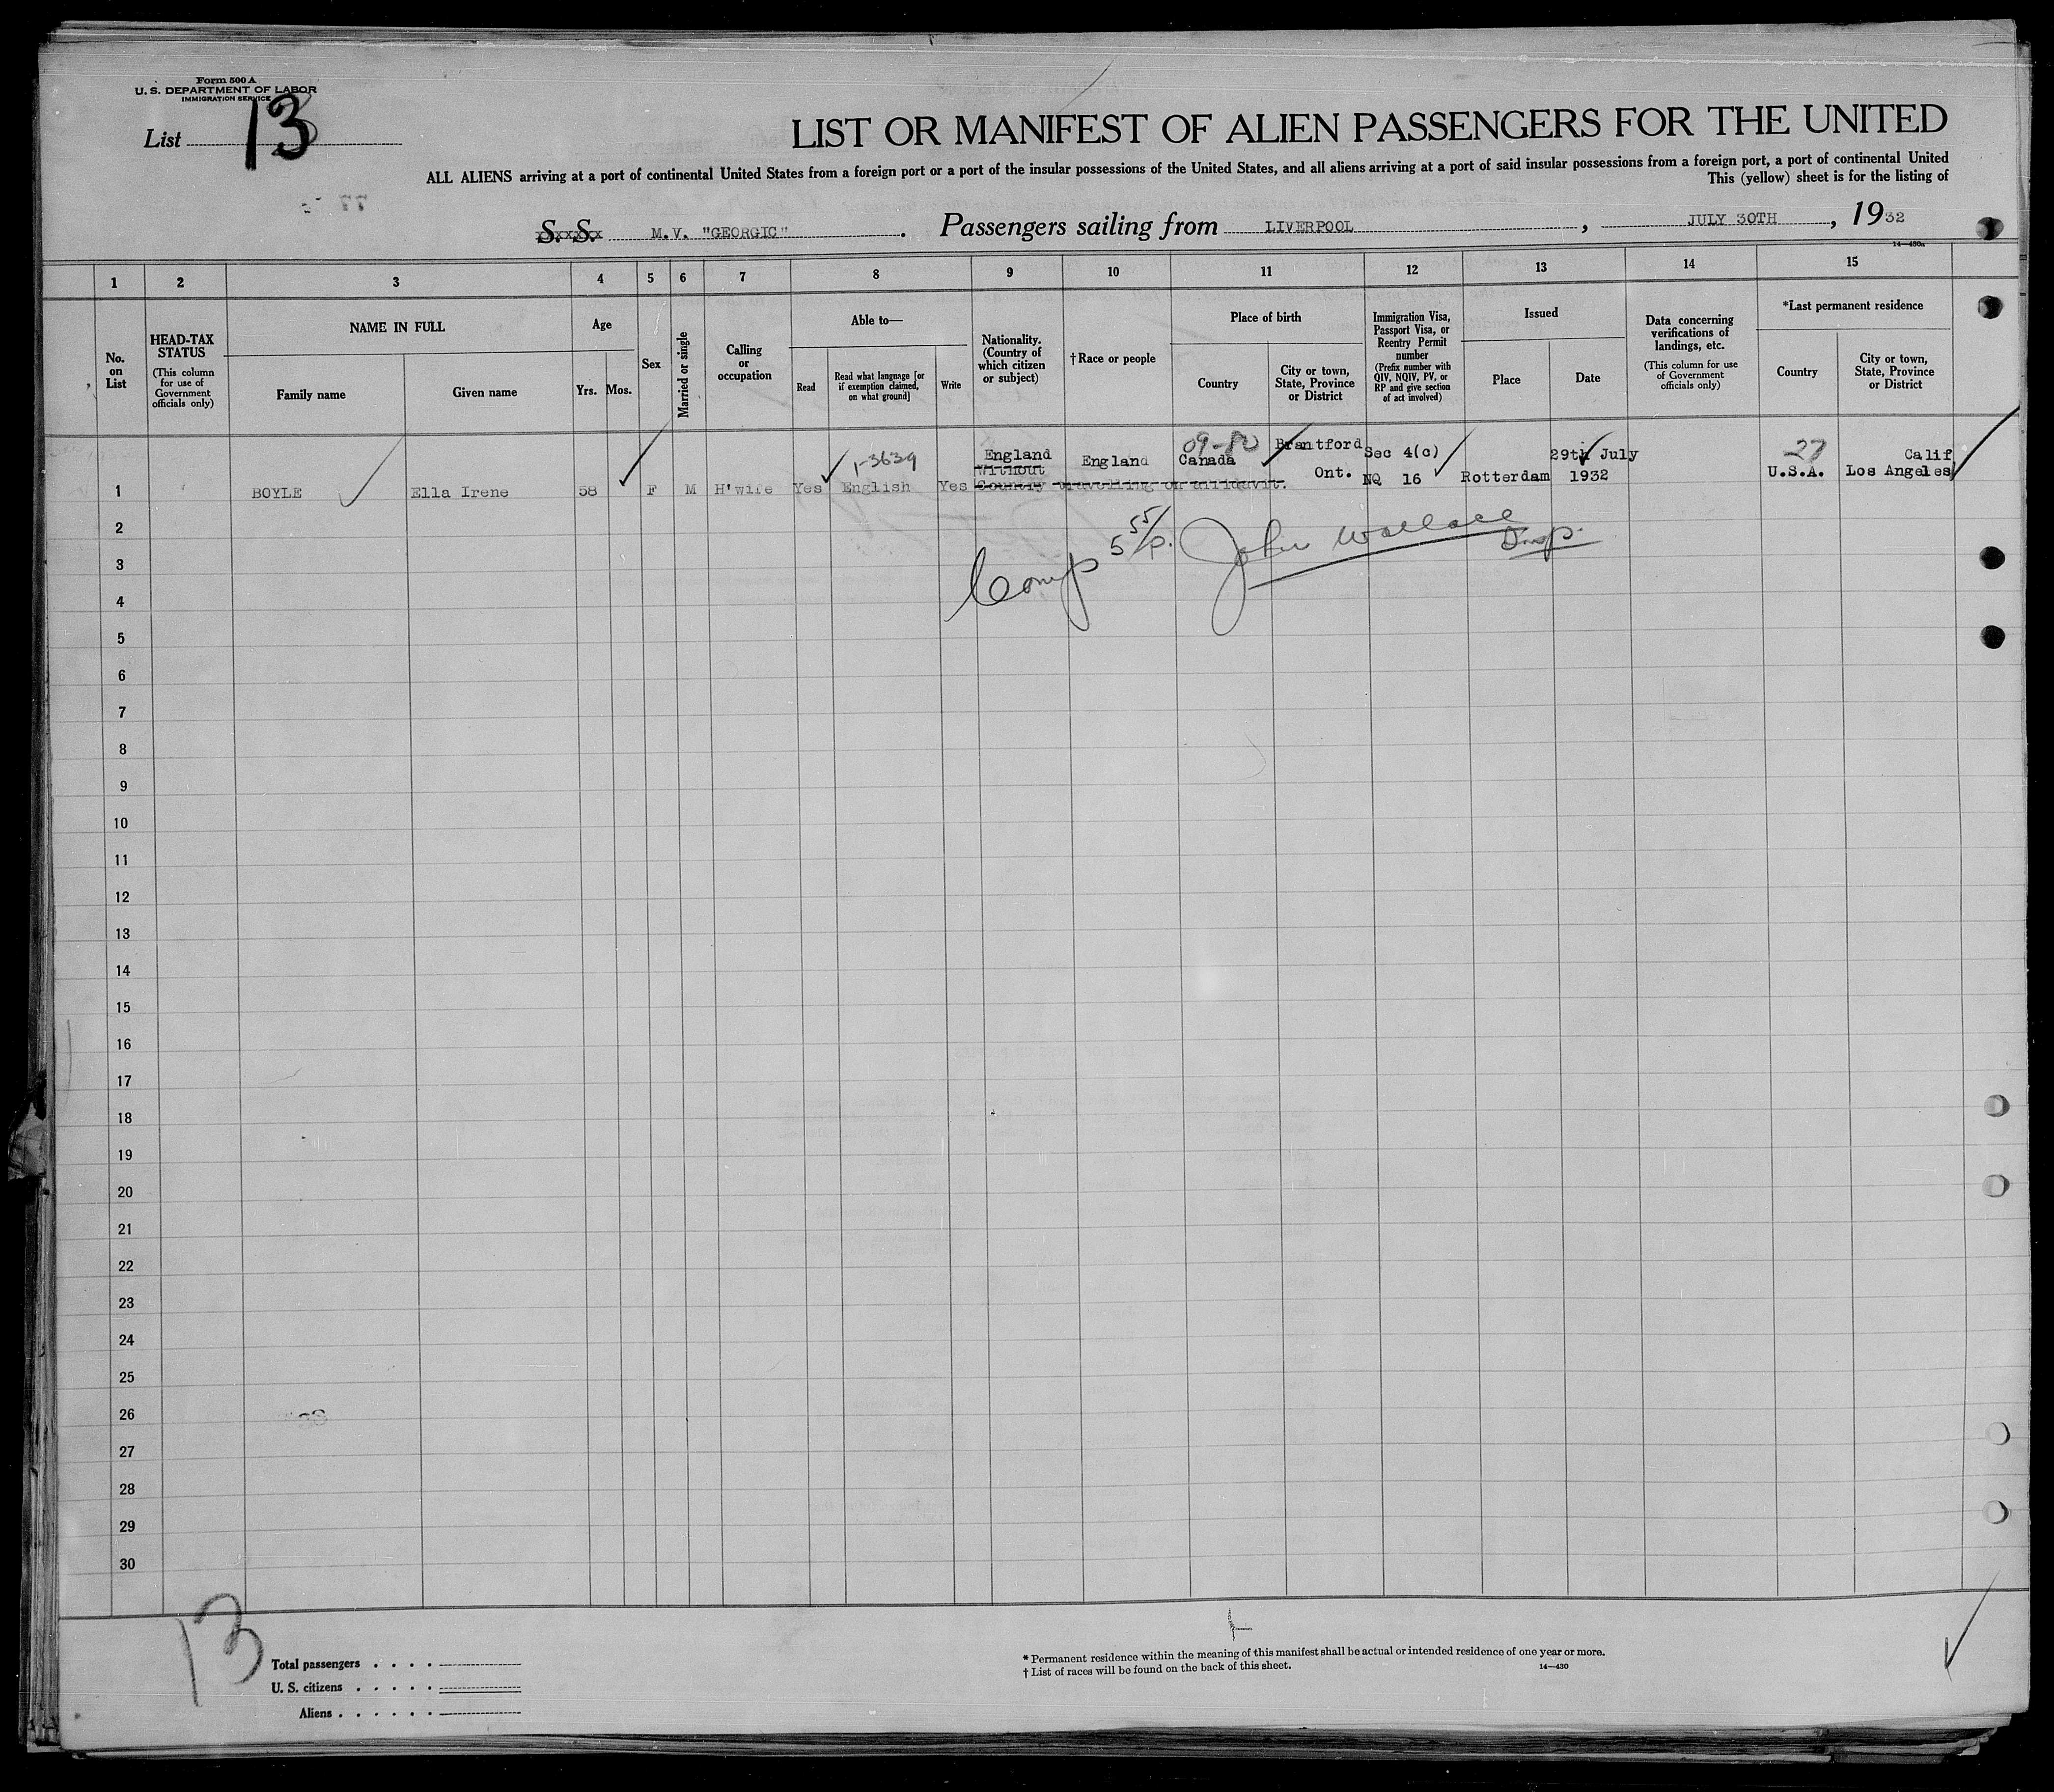 Form 500 A
U. S. DEPARTMENT OF LABOR
IMMIGRATION SERVICE
List 13
LIST OR MANIFEST OF ALIEN PASSENGERS FOR THE UNITED
ALL ALIENS arriving at a port of continental United States from a foreign port or a port of the insular possessions of the United States, and all aliens arriving at a port of said insular possessions from a foreign port, a port of continental United
This (yellow) sheet is for the listing of
S. S. M.V. "GEORGIC". Passengers sailing from LIVERPOOL, JULY 30TH, 1932
14—430a
1 2 3 4 5 6 7 8 9 10 11 12 13 14 15
No. on List
HEAD-TAX STATUS
(This column for use of Government officials only)
NAME IN FULL
Family name
Given name
Age
Yrs. Mos.
Sex
Married or single
Calling or occupation
Able to—
Read
Read what language [or if exemption claimed, on what ground]
Write
Nationality. (Country of which citizen or subject)
†Race or people
Place of birth
Country
City or town, State, Province or District
Immigration Visa, Passport Visa, or Reentry Permit number
(Prefix number with QIV, NQIV, PV, or RP and give section of act involved)
Issued
Place
Date
Data concerning verifications of landings, etc.
(This column for use of Government officials only)
*Last permanent residence
Country
City or town, State, Province or District
09-80 Brantford
1-3639 England England Canada Sec 4(c) 29th July 27 Calif
Without Ont. NQ 16 Rotterdam 1932 U.S.A. Los Angeles
1 BOYLE Ella Irene 58 F M H'wife Yes English Yes Country travelling on affidavit.
2
3
4
5
6
7
8
9
10
11
12
13
14
15
16
17
18
19
20
21
22
23
24
25
26
27
28
29
30
Comp 5 55/p. John Wallace Insp.
13
Total passengers
U. S. citizens
Aliens
* Permanent residence within the meaning of this manifest shall be actual or intended residence of one year or more.
† List of races will be found on the back of this sheet.
14—430